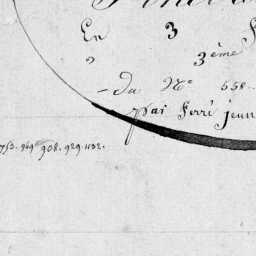 En 3
3ème
Du No. 558.
par Ferré jeun
753. 969. 908. 929. 1132.